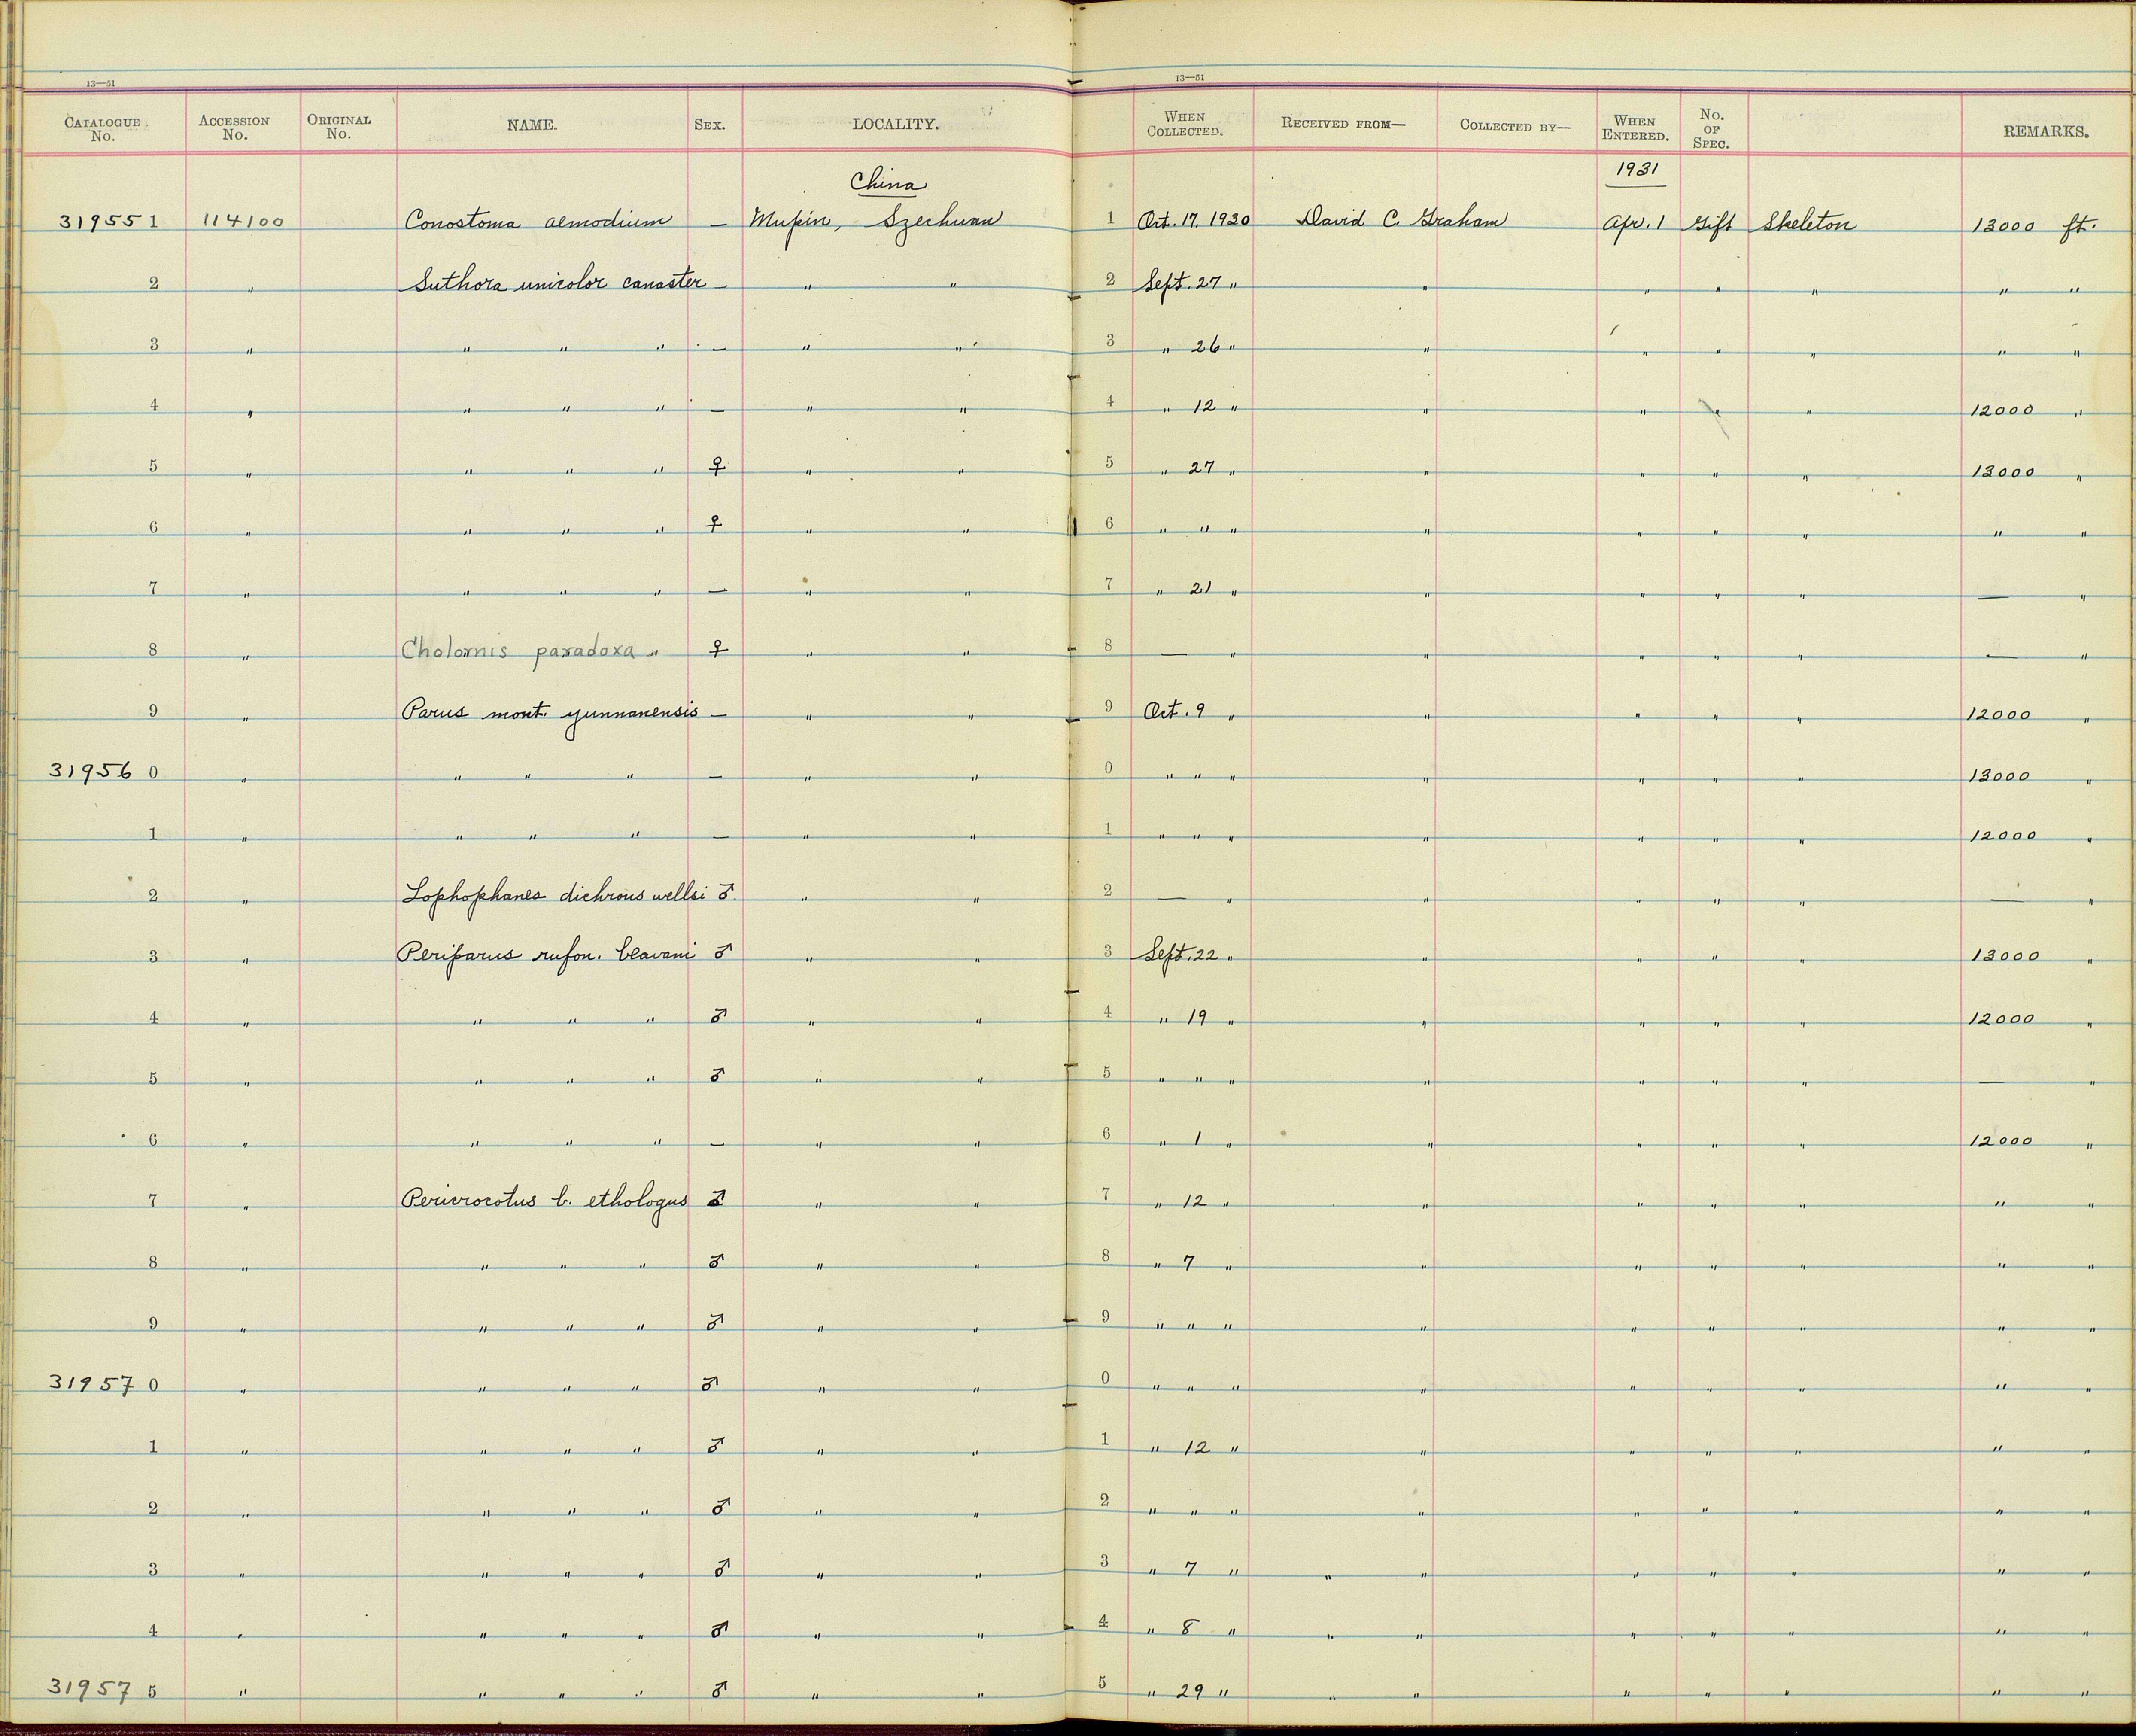 13—51 13—51
CATALOGUE No. ACCESSION No. ORIGINAL No. NAME. SEX. LOCALITY. WHEN COLLECTED. RECEIVED FROM— COLLECTED BY— WHEN ENTERED. No. OF SPEC. REMARKS.
China 1931
319551 114100 Conostoma aemodium — Mupin, Szechuan 1 Oct. 17. 1930 David C. Graham Apr. 1 Gift Skeleton 13000 ft.
2 " Suthora unicolor canaster — " " 2 Sept. 27 " " " " " " "
3 " " " " — " " 3 " 26 " " " " " " "
4 " " " " — " " 4 " 12 " " " " " 12000 "
5 " " " " ♀ " " 5 " 27 " " " " " 13000 "
6 " " " " ♀ " " 6 " " " " " " " " "
7 " " " " — " " 7 " 21 " " " " " — "
8 " Cholornis paradoxa " ♀ " " 8 — " " " " " — "
9 " Parus mont. yunnanensis — " " 9 Oct. 9 " " " " " 12000 "
319560 " " " " — " " 0 " " " " " " " 13000 "
1 " " " " — " " 1 " " " " " " " 12000 "
2 " Lophophanes dichrous wellsi ♂ " " 2 — " " " " " — "
3 " Periparus rufon. beavani ♂ " " 3 Sept. 22 " " " " " 13000 "
4 " " " " ♂ " " 4 " 19 " " " " " 12000 "
5 " " " " ♂ " " 5 " " " " " " " — "
6 " " " " — " " 6 " 1 " " " " " 12000 "
7 " Pericrocotus b. ethologus ♂ " " 7 " 12 " " " " " " "
8 " " " " ♂ " " 8 " 7 " " " " " " "
9 " " " " ♂ " " 9 " " " " " " " " "
319570 " " " " ♂ " " 0 " " " " " " " " "
1 " " " " ♂ " " 1 " 12 " " " " " " "
2 " " " " ♂ " " 2 " " " " " " " " "
3 " " " " ♂ " " 3 " 7 " " " " " " " "
4 " " " " ♂ " " 4 " 8 " " " " " " " "
319575 " " " " ♂ " " 5 " 29 " " " " " " " "